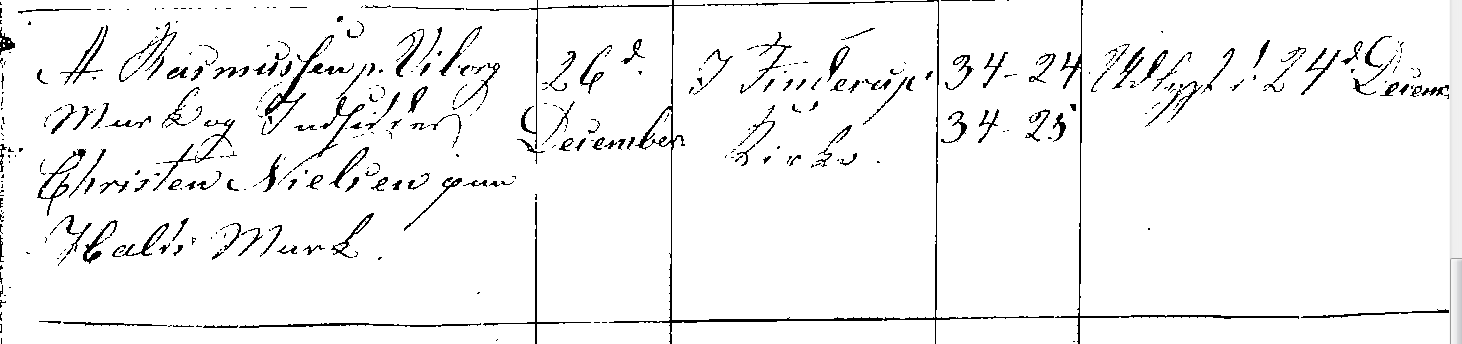 A. Rasmussen p. Viborg
Mark og Indsidder
Christen Nielsen paa
Hald's Mark.
26d.
December
I Finderup
Kirke.
34-24
34-25
d. 24d. Decem